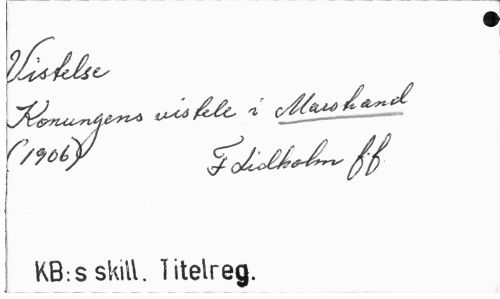 Vistelse
Konungens vistele i Marstrand
(1906)
F Lidholm ff
KB:s skill. Titelreg.